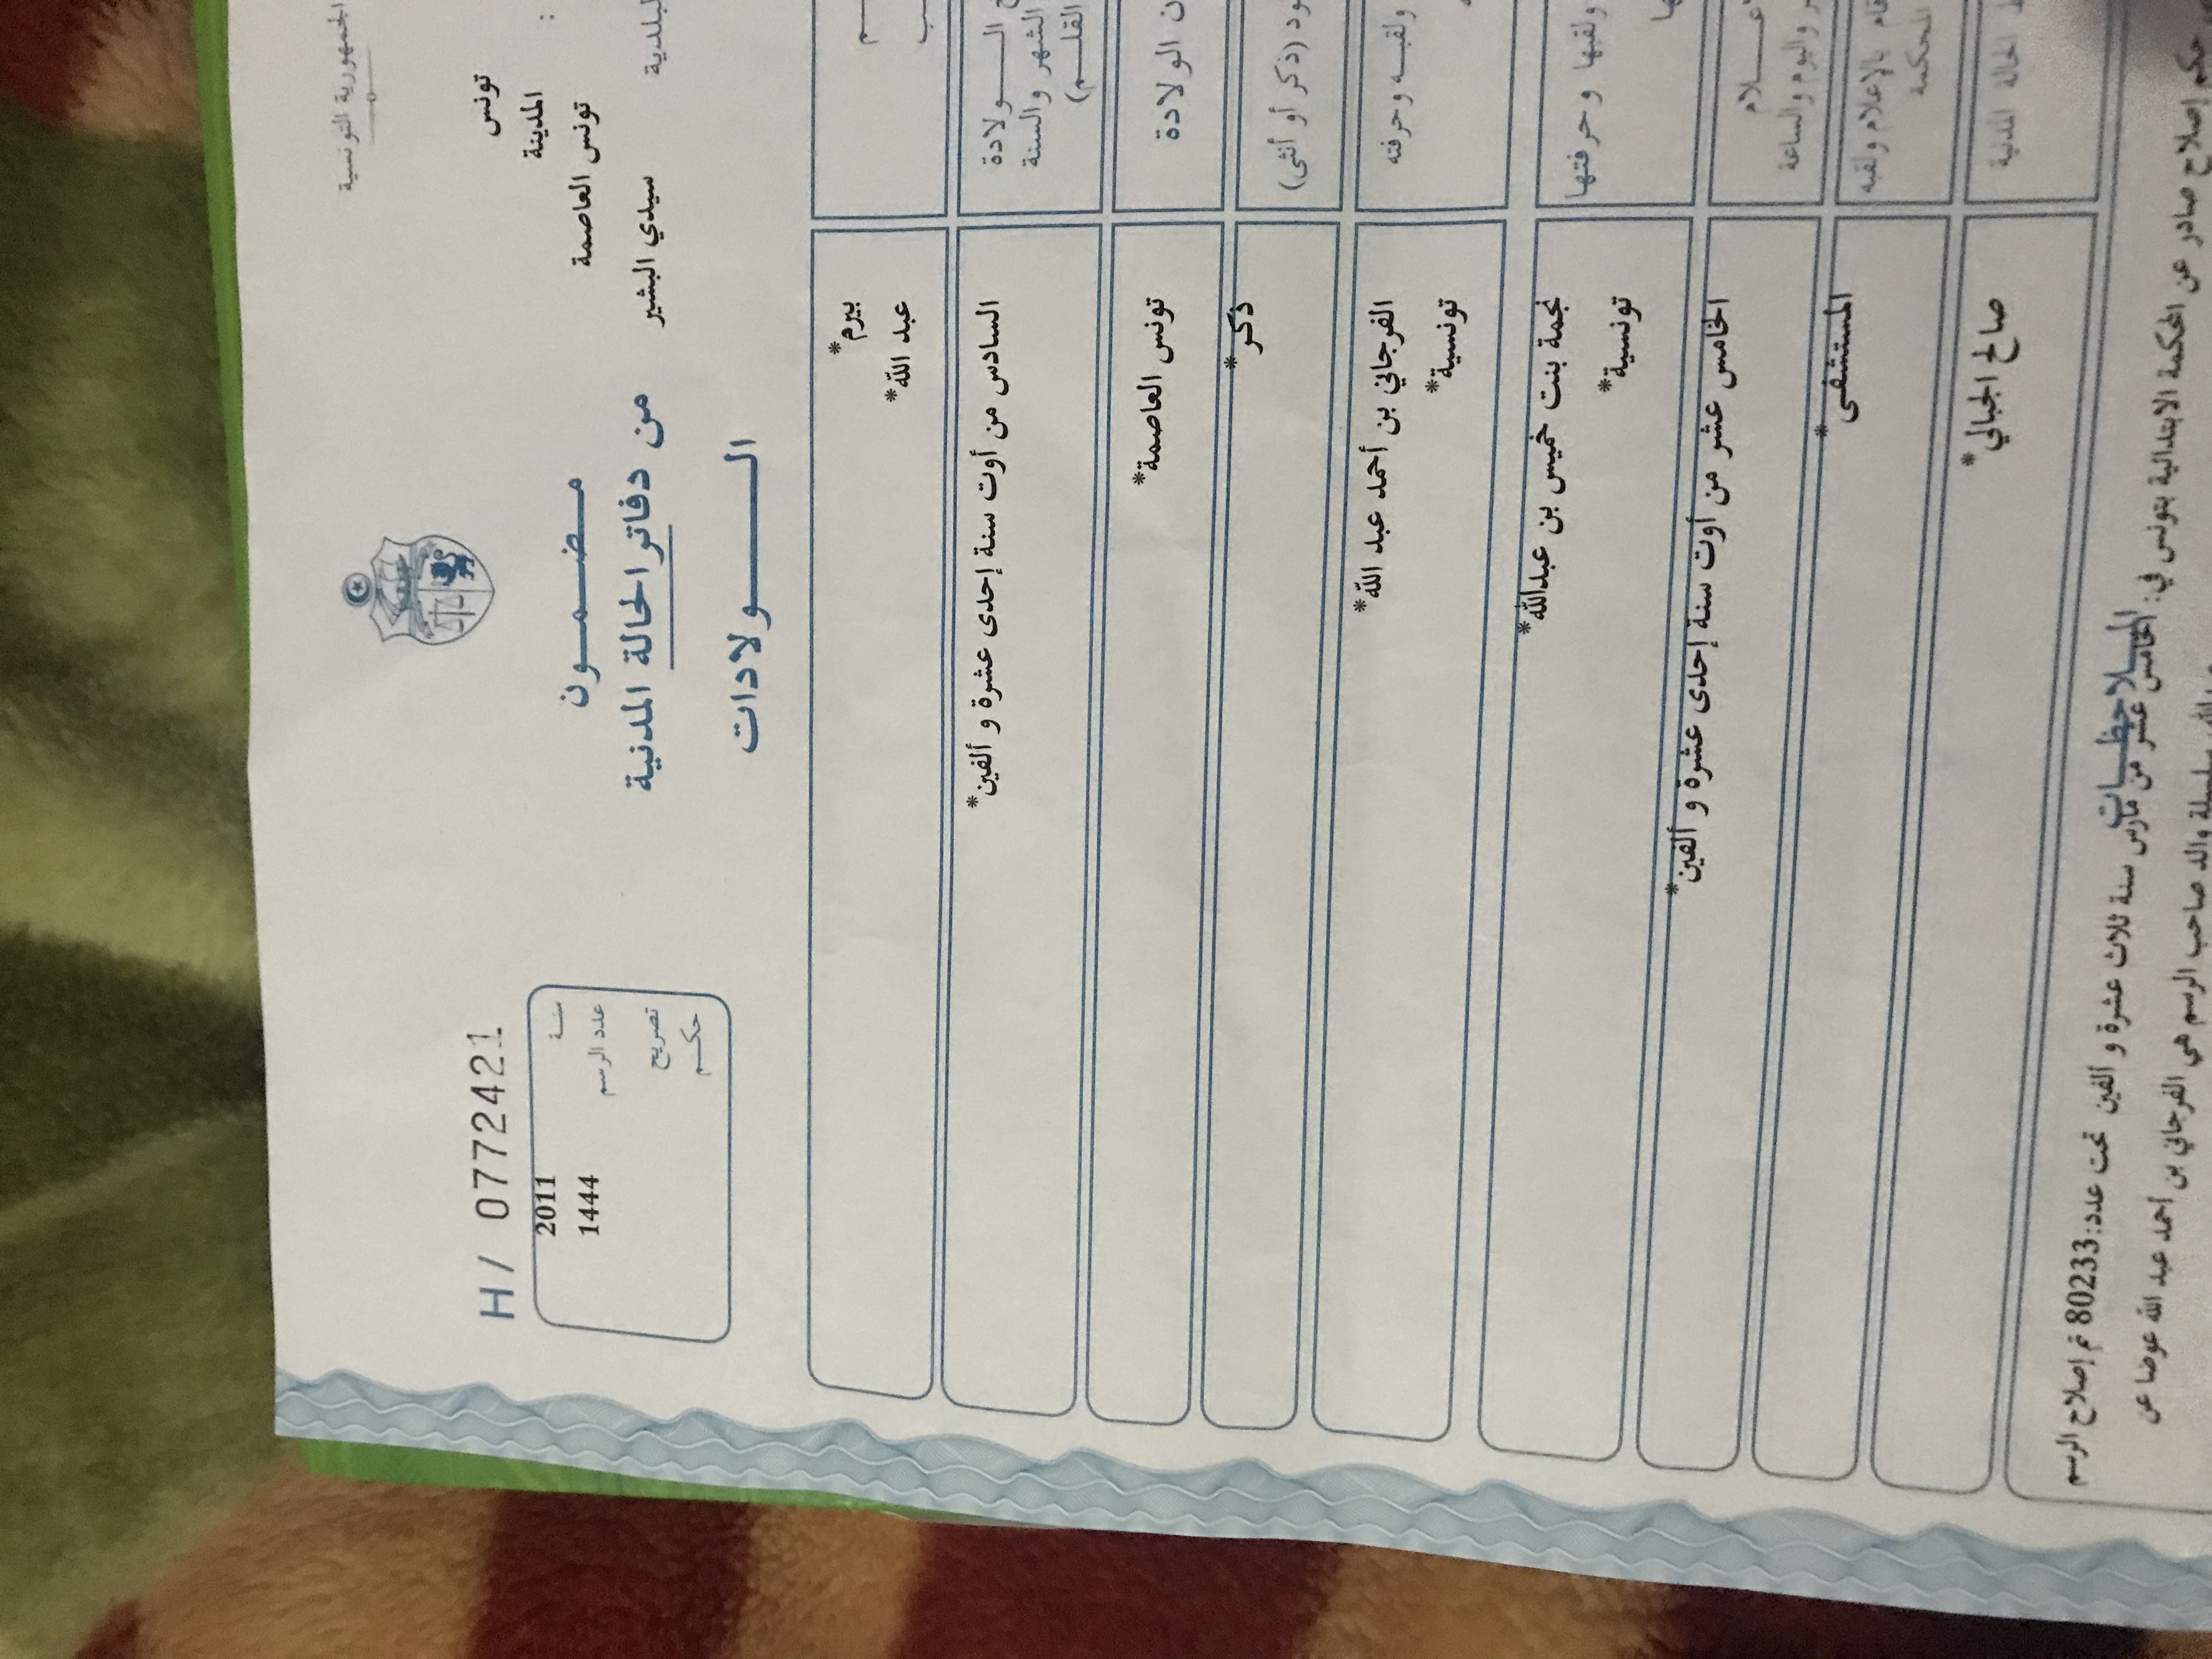 الجمهورية التونسية
تونس
المدينة
تونس العاصمة
البلدية سيدي البشير
H/ 0772421
سنة 2011
عدد الرسم 1444
تصريح
حكم
مضمون
من دفاتر الحالة المدنية
الولادات
بيرم*
عبد الله*
الولادة
الشهر والسنة
القلم)
السادس من أوت سنة إحدى عشرة و ألفين*
الولادة تونس العاصمة*
(ذكر أو أنثى) ذكر*
ولقبه وحرفته الفرجاني بن أحمد عبد الله*
تونسية*
ولقبها وحرفتها نجمة بنت خميس بن عبدالله*
تونسية*
واليوم والساعة الخامس عشر من أوت سنة إحدى عشرة و ألفين*
بالإعلام ولقبه المستشفى*
المحكمة
الحالة المدنية صالح الجبالي*
الملاحظات
حكم إصلاح صادر عن المحكمة الابتدائية بتونس في: الخامس عشر من مارس سنة ثلاث عشرة و ألفين تحت عدد:80233 تم إصلاح الرسم
سلسلة والد صاحب الرسم هي الفرجاني بن أحمد عبد الله عوضا عن